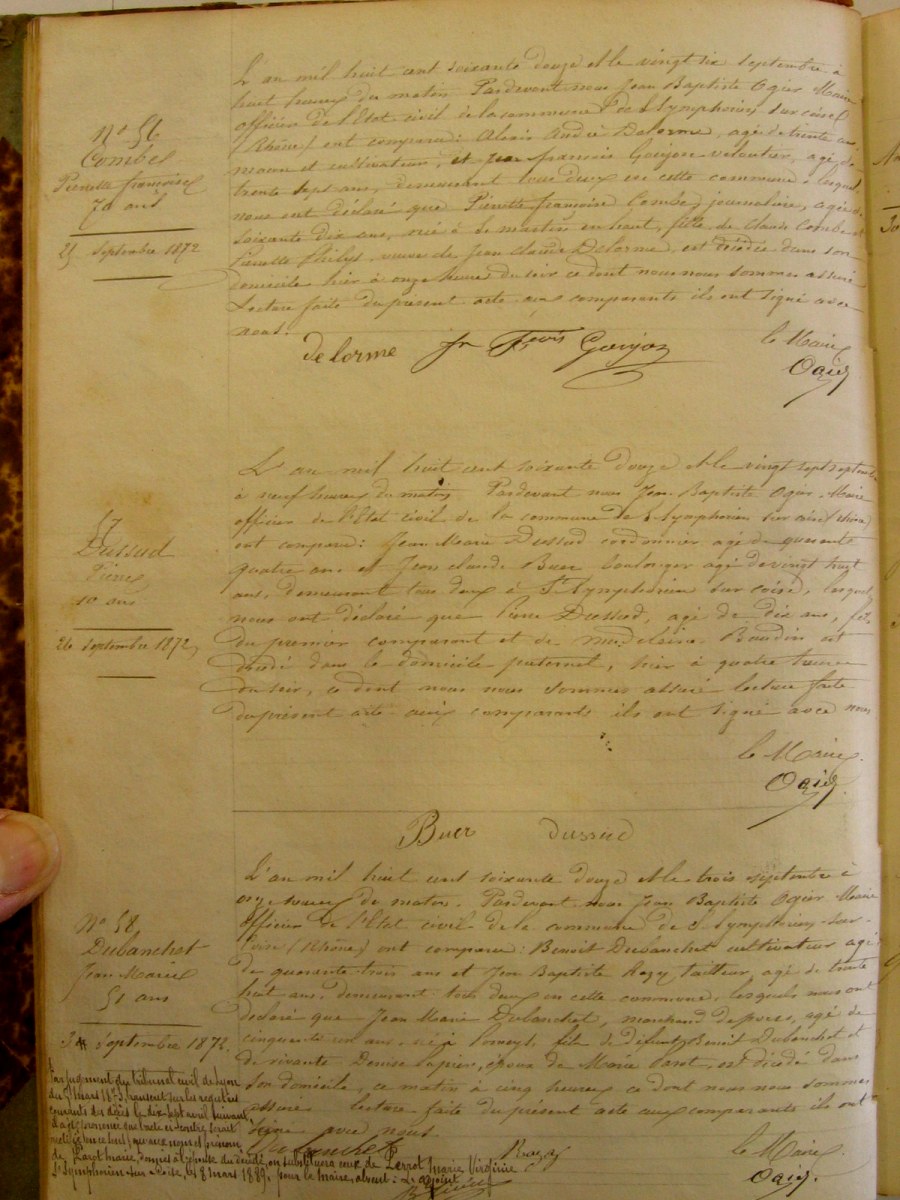 N° 56
Combe
Pierrette françoise
70 ans
25 Septembre 1872
L'an mil huit cent soixante douze et le vingt six septembre à
huit heures du matin Pardevant nous Jean Baptiste Ogier Maire
officier de l'Etat civil de la commune de St Symphorien sur coise
(Rhône) ont comparu: André Delorme, agé de trente
et cultivateur, et françois Goujon agé de
trente sept ans, demeurant tous deux en cette commune, lesquels
nous ont déclaré que Pierrette françoise Combe, journalière, agée de
soixante dix ans, née à St martin en haut, fille de Claude Combe et
Pierrette veuve de Jean Claude Delorme, est décédée dans son
domicile hier à onze heures du soir ce dont nous nous sommes assuré
Lecture faite du présent acte aux comparants ils ont signé avec
nous.
delorme Goujon
le Maire
Ogier
57
Dussud
Pierre
10 ans
26 Septembre 1872
L'an mil huit cent soixante douze et le vingt sept septembre
à neuf heures du matin Pardevant nous Jean Baptiste Ogier Maire
officier de l'Etat civil de la commune de St Symphorien sur coise (Rhône)
ont comparu: Jean Marie Dussud cordonnier agé de quarante
quatre ans et Jean claude Buer boulanger agé de vingt huit
ans, demeurant tous deux à St Symphorien sur coise, lesquels
nous ont déclaré que Pierre Dussud, agé de dix ans, fils
du premier comparant et de claire Baudin est
décédé dans le domicile paternel, hier à quatre heures
du soir, ce dont nous nous sommes assuré lecture faite
du présent acte aux comparants ils ont signé avec nous
le Maire
Ogier
Buer dussud
N° 58
Dubanchet
Jean Marie
51 ans
3 Septembre 1872
L'an mil huit cent soixante douze et le trois septembre à
onze heures du matin. Pardevant nous Jean Baptiste Ogier Maire
officier de l'Etat civil de la commune de St Symphorien-sur-
Coise (Rhône) ont comparu: Benoit Dubanchet cultivateur agé
de quarante trois ans et Jean Baptiste tailleur, agé de trente
huit ans, demeurant tous deux en cette commune, lesquels nous ont
déclaré que Jean Marie Dubanchet, marchand de porcs, agé de
cinquante un ans, né à fils de défunt Benoit Dubanchet et
de vivante Denise époux de Marie Parot, est décédé dans
son domicile, ce matin à cinq heures ce dont nous nous sommes
assuré lecture faite du présent acte aux comparants ils ont
signé avec nous
Dubanchet
le Maire
Ogier
Par jugement du tribunal civil de Lyon
du mars transcrit sur les registres
courants des décès le dix sept avril suivant,
il a été ordonné que l'acte ci-contre serait
rectifié en ce sens qu'aux noms et prénom
de Parot marie, donnés à l'épouse du décédé, on substituera ceux de Perrot Marie Virginie
St Symphorien sur Coise, le 8 mars 1889. pour le maire, absent: L'adjoint